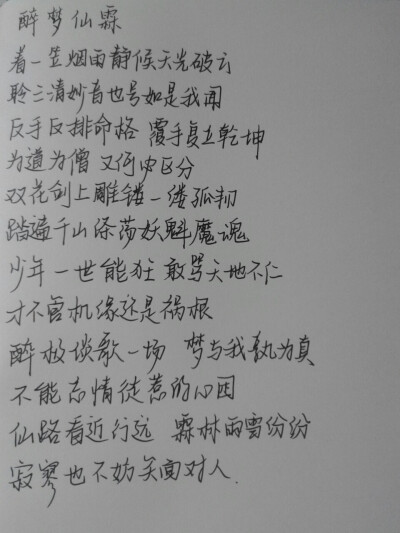 醉梦仙霖
着一笠烟雨静候天光破云
聆三清妙音也号如是我闻
反手反排命格 覆手复立乾坤
为道为僧 又何由区分
双花剑上雕镂一缕孤韧
踏遍千山涤荡妖魁魔魂
少年一世能狂 敢骂天地不仁
才不管机缘还是祸根
醉极谈歌一场 梦与我孰为真
不能忘情徒惹的心因
仙路看近行远 霖林雨雪纷纷
寂寥也不妨笑面对人.